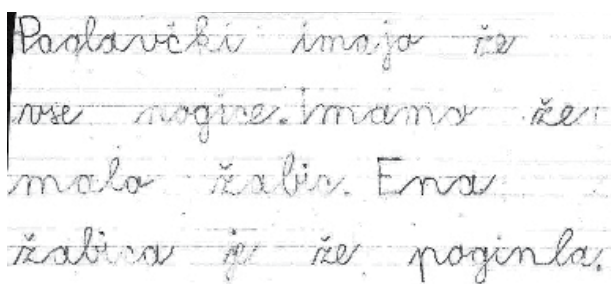 Paglavčki imajo že
vse nogice. Imamo že
malo žabic. Ena
žabica je že poginla.